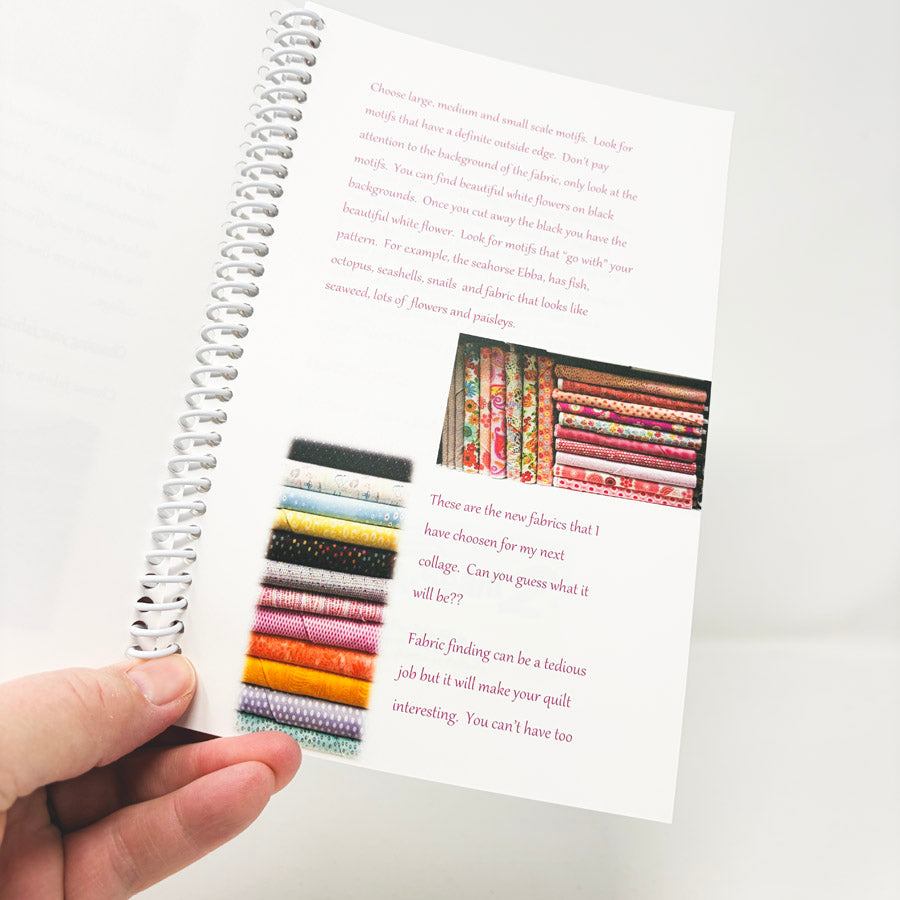 Choose large, medium and small scale motifs. Look for
motifs that have a definite outside edge. Don't pay
attention to the background of the fabric, only look at the
motifs. You can find beautiful white flowers on black
backgrounds. Once you cut away the black you have the
beautiful white flower. Look for motifs that "go with" your
pattern. For example, the seahorse Ebba, has fish,
octopus, seashells, snails and fabric that looks like
seaweed, lots of flowers and paisleys.
These are the new fabrics that I
have choosen for my next
collage. Can you guess what it
will be??
Fabric finding can be a tedious
job but it will make your quilt
interesting. You can't have too